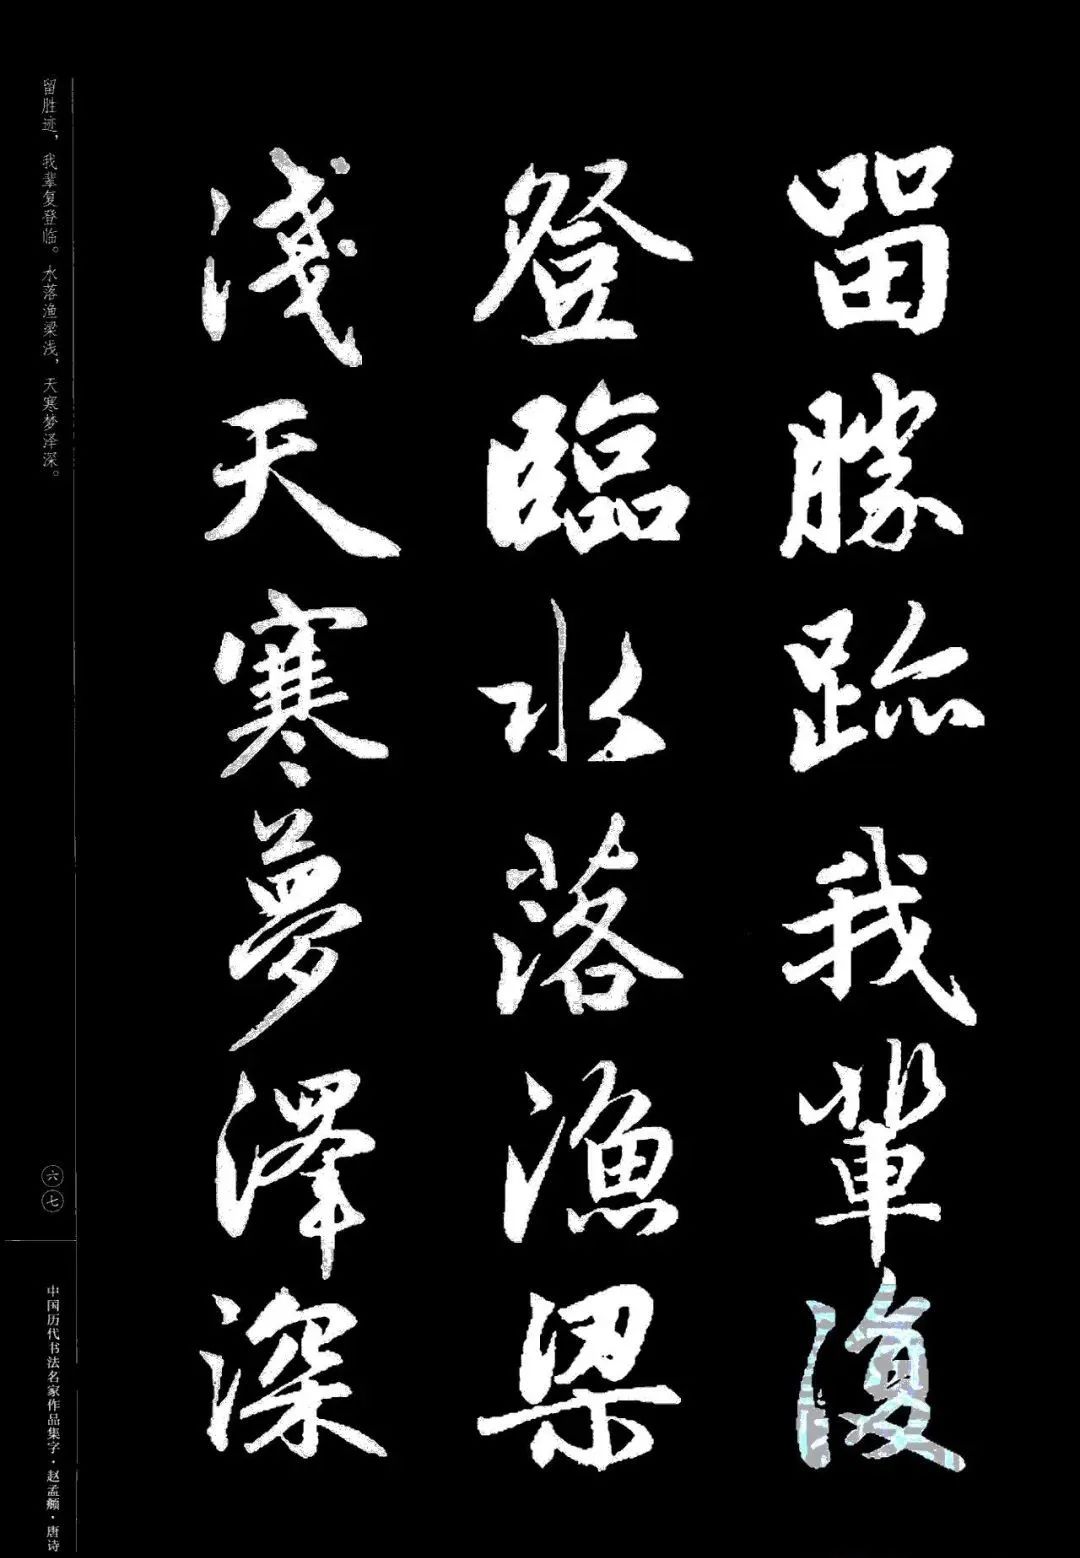 留勝跡我輩復
登臨水落漁梁
淺天寒夢澤深
留胜迹，我辈复登临。水落渔梁浅，天寒梦泽深。
六七
中国历代书法名家作品集字·赵孟頫·唐诗